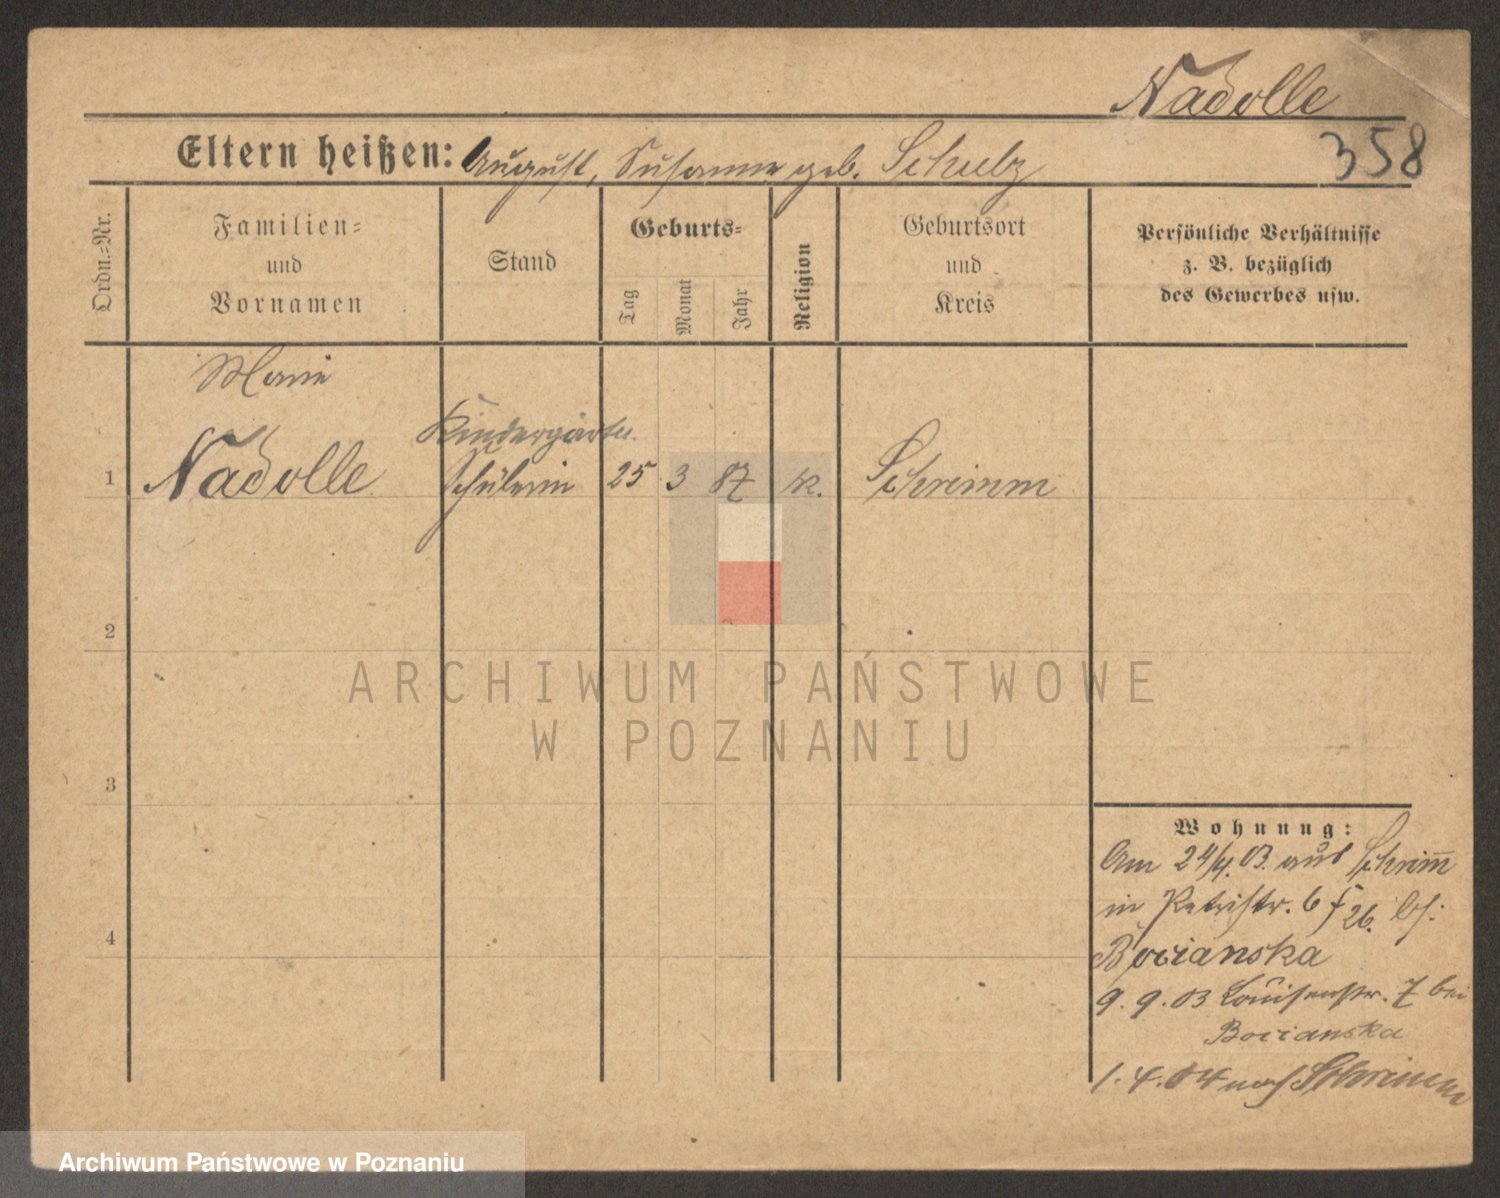 Nadolle
358
Eltern heißen: August, Susanna geb. Schulz
Ordn.-Nr.
Familien-
und
Vornamen
Stand
Geburts-
Tag
Monat
Jahr
Religion
Geburtsort
und
Kreis
Persönliche Verhältnisse
z. B. bezüglich
des Gewerbes usw.
Marie
Kindergärtn.
1 Nadolle Schülerin 25 3 87 k. Schrimm
2
ARCHIWUM PAŃSTWOWE
W POZNANIU
3
4
Wohnung:
Am 24/4. 03. aus Schrim̅
in Petristr. 6 26. bei
Bocianska
9. 9. 03 Louisenstr. 7 bei
Bocianska
1. 4. 04 nach Schrimm
Archiwum Państwowe w Poznaniu